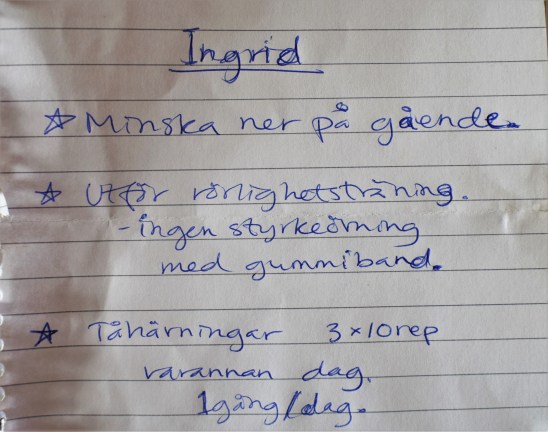 Ingrid
☆ Minska ner på gående.
☆ Utför rörlighetsträning.
- ingen styrkeövning
med gummiband.
☆ Tåhärningar 3x10rep
varannan dag.
1gång/dag.